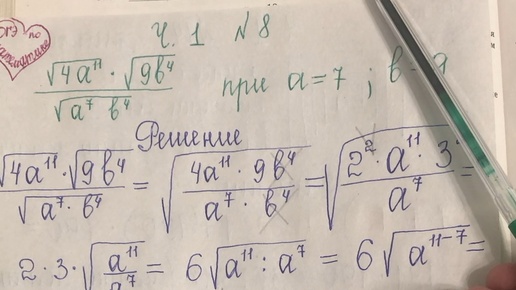 ОГЭ по математике
Ч. 1 № 8
√(4a¹¹) · √(9b⁴) / √(a⁷ b⁴) при a=7 ; b
Решение
√(4a¹¹) · √(9b⁴) / √(a⁷ · b⁴) = √(4a¹¹ · 9b⁴ / (a⁷ · b⁴)) = √(2² · a¹¹ · 3 / a⁷) =
2 · 3 · √(a¹¹ / a⁷) = 6√(a¹¹ : a⁷) = 6√(a¹¹⁻⁷) =